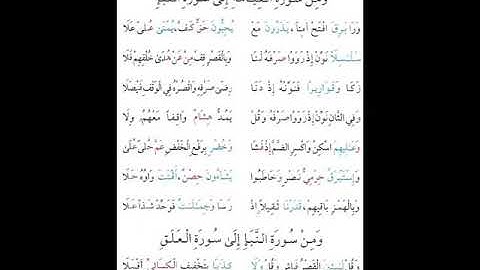 وَمِنْ سُورَةِ الْقِيَامَةِ إِلَى سُورَةِ النَّبَإِ
وَرَا بَرَقَ افْتَحْ آمِنًا يَذَرُونَ مَعْ يُحِبُّونَ حَقٌّ كَفَّ يُمْنَى عُلًا عَلَا
سَلَاسِلَ نَوِّنْ إِذْ رَوَوْا صَرْفَهُ لَنَا وَبِالْقَصْرِ قِفْ مِنْ عَنْ هُدًى خُلْفُهُمْ فَلَا
زَكَا وَقَوَارِيرًا فَنَوِّنْهُ إِذْ دَنَا رِضَى صَرْفِهِ وَاقْصُرْهُ فِي الْوَقْفِ فَيْصَلَا
وَفِي الثَّانِ نَوِّنْ إِذْ رَوَوْا صَرْفَهُ وَقُلْ يَمُدُّ هِشَامٌ وَاقِفًا مَعْهُمُ وِلَا
وَعَالِيهِمُ اسْكِنْ وَاكْسِرِ الضَّمَّ إِذْ فَشَا وَخُضْرٌ بِرَفْعِ الْخَفْضِ عَمَّ حُلًى عُلَى
وَإِسْتَبْرَقٌ حِرْمِيُّ نَصْرٍ وَخَاطَبُوا يَشَاءُونَ حِصْنٌ أُقِّتَتْ وَاوُهُ حَلَا
وَبِالْهَمْزِ بَاقِيهِمْ قَدَرْنَا ثَقِيلًا إِذْ رَسَا وَجِمَالَاتٌ فَوَحِّدْ شَذًا عَلَا
وَمِنْ سُورَةِ النَّبَإِ إِلَى سُورَةِ الْعَلَقِ
وَقُلْ لَابِثِينَ الْقَصْرُ فَاشٍ وَقُلْ وَلَا كِذَابًا بِتَخْفِيفِ الْكِسَائِيِّ أَقْبَلَا